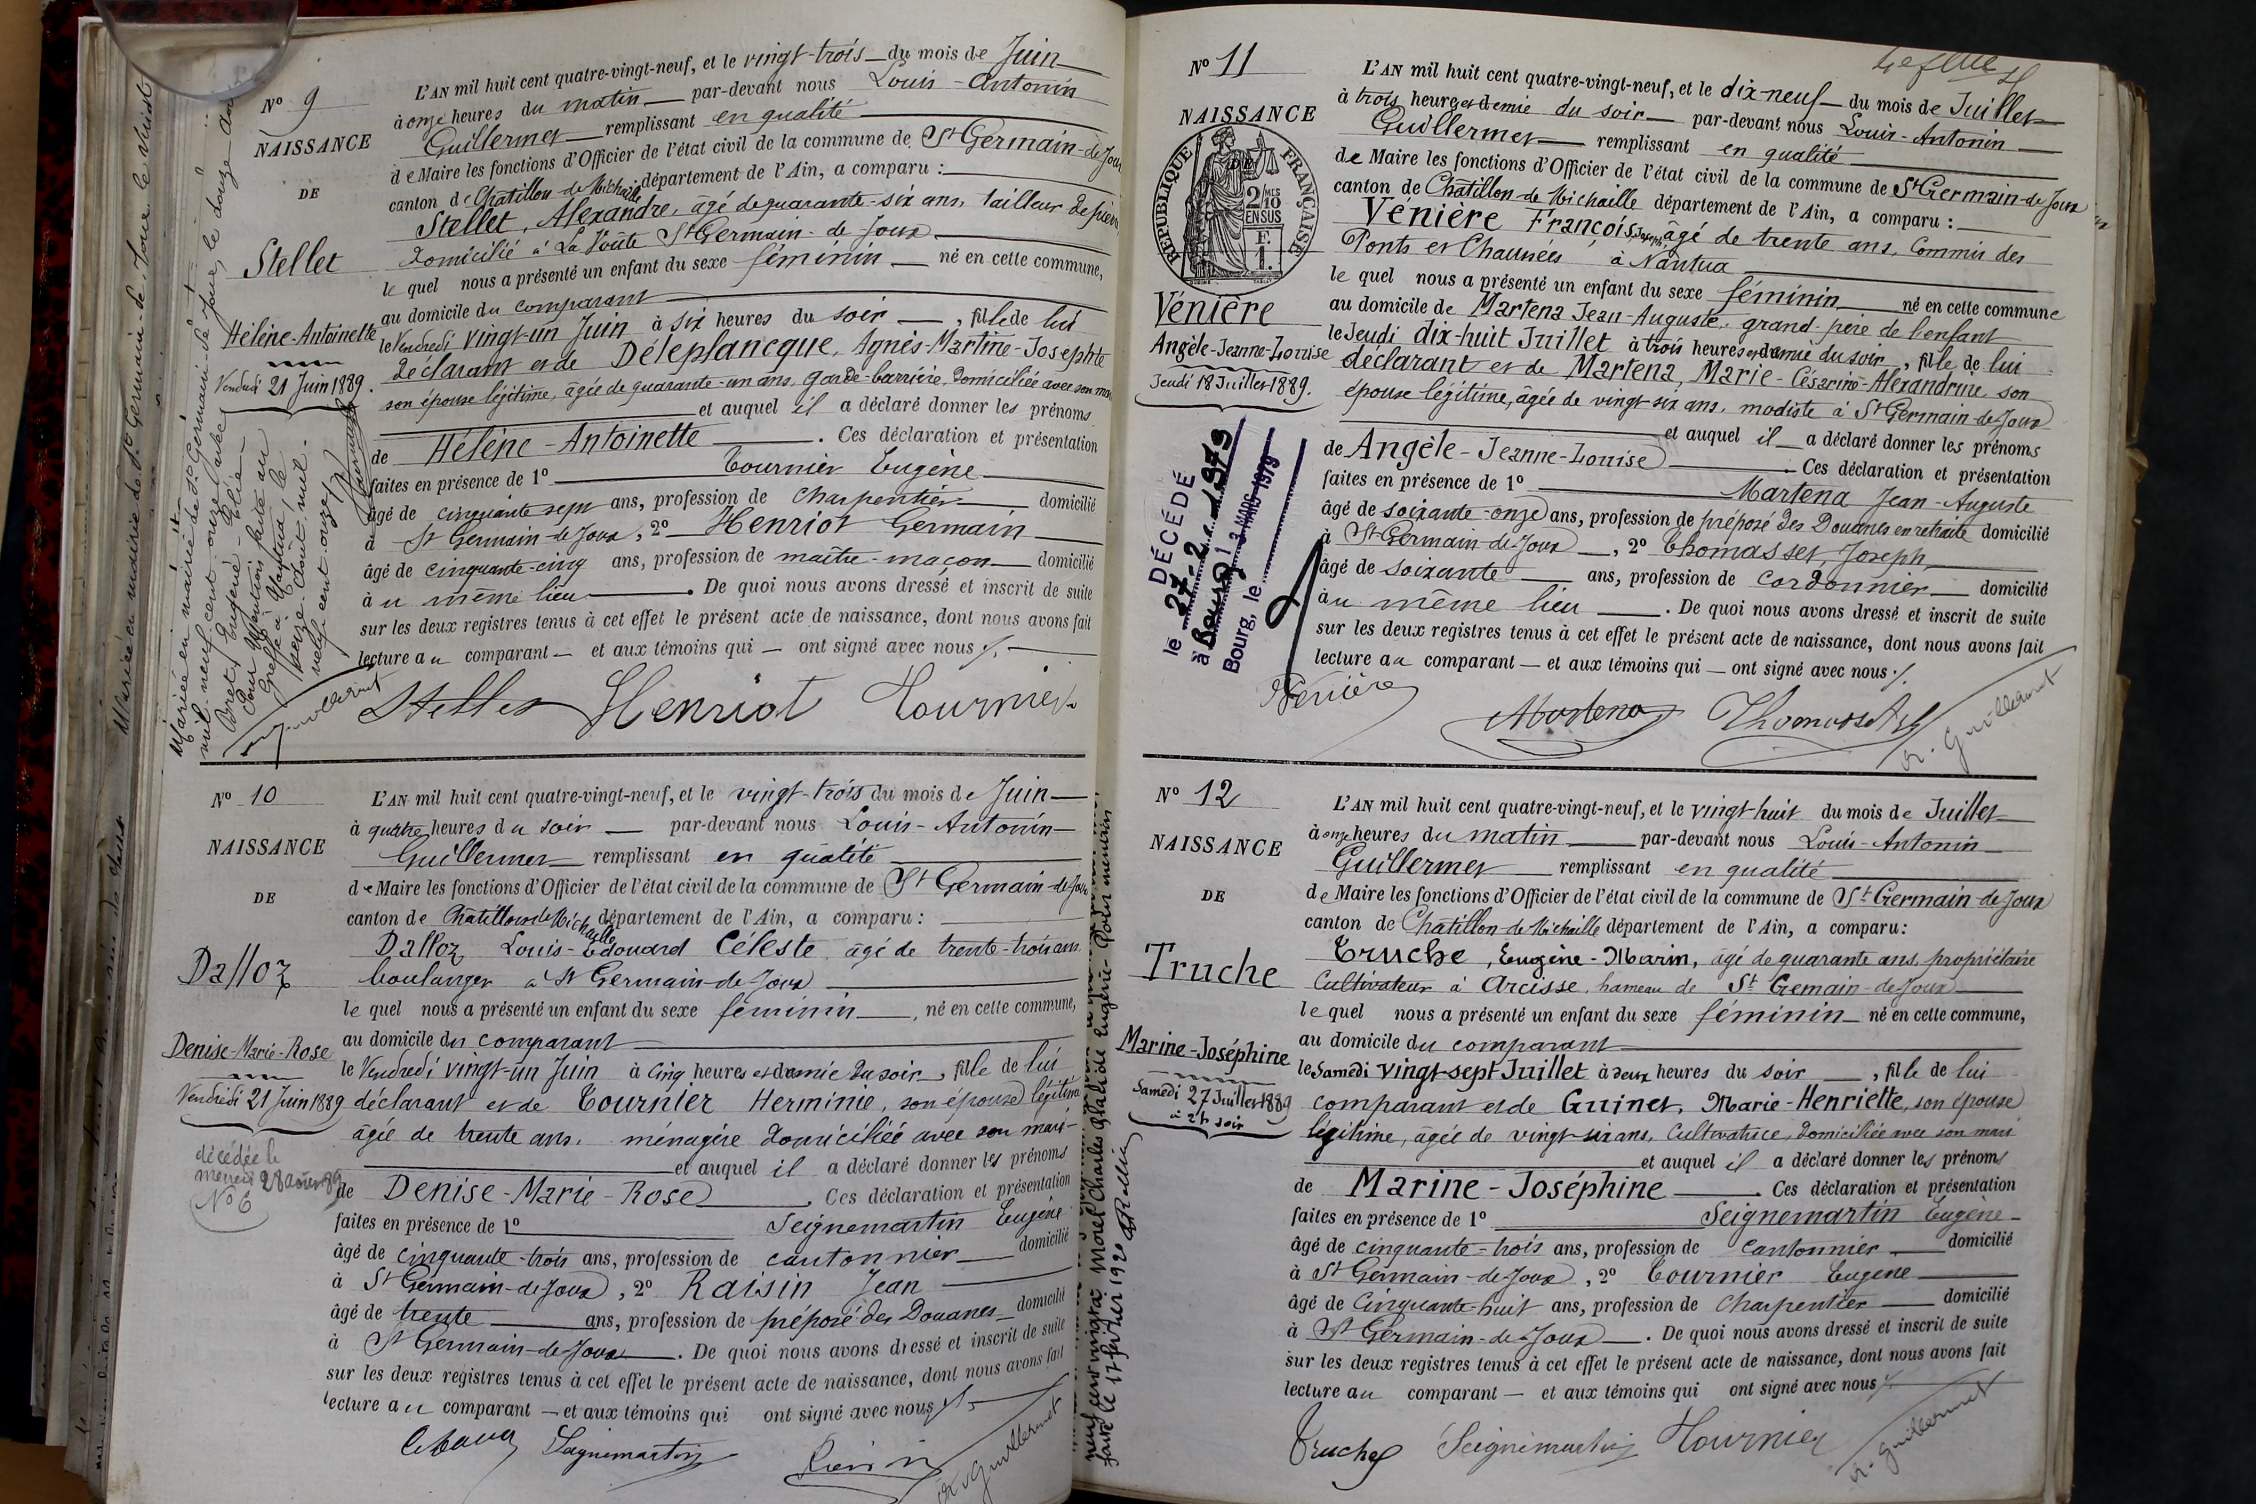 Nº 9
NAISSANCE
DE
Stellet
Hélène-Antoinette
Vendredi 21 Juin 1889.
L'AN mil huit cent quatre-vingt-neuf, et le vingt-trois du mois de Juin
à onze heures du matin par-devant nous Louis-Antonin
Guillermet remplissant en qualité
de Maire les fonctions d'Officier de l'état civil de la commune de St Germain-de-Joux
canton de Chatillon-de-Michaille département de l'Ain, a comparu :
Stellet, Alexandre, âgé de quarante-six ans, tailleur de pierres
Domicilié à La Voûte St Germain-de-Joux
le quel nous a présenté un enfant du sexe féminin né en cette commune,
au domicile du comparant
le Vendredi vingt-un Juin à six heures du soir, fille de lui
déclarant et de Déleplancque, Agnès-Martine-Josephte
son épouse légitime, âgée de quarante-un ans, garde-barrière, domiciliée avec son mari
et auquel il a déclaré donner les prénoms
de Hélène-Antoinette. Ces déclaration et présentation
faites en présence de 1º Tournier Eugène
âgé de cinquante sept ans, profession de charpentier domicilié
à St Germain-de-Joux, 2º Henriot Germain
âgé de cinquante-cinq ans, profession de maître-maçon domicilié
à u même lieu. De quoi nous avons dressé et inscrit de suite
sur les deux registres tenus à cet effet le présent acte de naissance, dont nous avons fait
lecture au comparant — et aux témoins qui — ont signé avec nous
Mariée en mairie de St Germain-de-Joux, le douze Août
mil-neuf cent onze, avec
Bretet Eugène-Elie-
Pour mention faite au
Greffe à Nantua, le
seize Août mil-
neuf cent onze
Stellet Henriot Tournier
Nº 10
NAISSANCE
DE
Dalloz
Denise-Marie-Rose
Vendredi 21 Juin 1889
décédée le
mercredi 28 août 89
Nº 6
L'AN mil huit cent quatre-vingt-neuf, et le vingt-trois du mois de Juin
à quatre heures du soir par-devant nous Louis-Antonin
Guillermet remplissant en qualité
de Maire les fonctions d'Officier de l'état civil de la commune de St Germain-de-Joux
canton de Châtillon-de-Michaille département de l'Ain, a comparu :
Dalloz, Louis-Edouard Céleste âgé de trente-trois ans
boulanger à St Germain-de-Joux
le quel nous a présenté un enfant du sexe féminin, né en cette commune,
au domicile du comparant
le Vendredi vingt-un Juin à cinq heures et demie du soir, fille de lui
déclarant et de Tournier Herminie, son épouse légitime
âgée de trente ans, ménagère domiciliée avec son mari-
et auquel il a déclaré donner les prénoms
de Denise-Marie-Rose. Ces déclaration et présentation
faites en présence de 1º Seignemartin Eugène
âgé de cinquante-trois ans, profession de cantonnier domicilié
à St Germain-de-Joux, 2º Raisin Jean
âgé de trente ans, profession de préposé des Douanes domicilié
à St Germain-de-Joux. De quoi nous avons dressé et inscrit de suite
sur les deux registres tenus à cet effet le présent acte de naissance, dont nous avons fait
lecture au comparant — et aux témoins qui ont signé avec nous
Seignemartin
Guillermet
Nº 11
NAISSANCE
RÉPUBLIQUE FRANÇAISE
2/10 EN SUS
F.
1.
Vénière
Angèle-Jeanne-Louise
Jeudi 18 Juillet 1889.
DÉCÉDÉ
le 27-2-1979
à Bourg
Bourg, le 13 MARS 1979
L'AN mil huit cent quatre-vingt-neuf, et le dix-neuf du mois de Juillet
à trois heures et demie du soir par-devant nous Louis-Antonin
Guillermet remplissant en qualité
de Maire les fonctions d'Officier de l'état civil de la commune de St Germain-de-Joux
canton de Châtillon-de-Michaille département de l'Ain, a comparu :
Vénière François, Joseph, âgé de trente ans, Commis des
Ponts et Chaussées à Nantua
le quel nous a présenté un enfant du sexe féminin né en cette commune
au domicile de Martena Jean-Auguste, grand-père de l'enfant
le Jeudi dix-huit Juillet à trois heures et demie du soir, fille de lui
déclarant et de Martena, Marie-Césarine-Alexandrine son
épouse légitime, âgée de vingt-six ans, modiste à St Germain-de-Joux
et auquel il a déclaré donner les prénoms
de Angèle-Jeanne-Louise. Ces déclaration et présentation
faites en présence de 1º Martena Jean-Auguste
âgé de soixante-onze ans, profession de préposé des Douanes en retraite domicilié
à St Germain-de-Joux, 2º Thomasset, Joseph,
âgé de soixante ans, profession de cordonnier domicilié
à u même lieu. De quoi nous avons dressé et inscrit de suite
sur les deux registres tenus à cet effet le présent acte de naissance, dont nous avons fait
lecture au comparant — et aux témoins qui — ont signé avec nous
Vénière
Martena Thomasset
A. Guillermet
Nº 12
NAISSANCE
DE
Truche
Marine-Joséphine
Samedi 27 Juillet 1889
à 2h soir
L'AN mil huit cent quatre-vingt-neuf, et le vingt huit du mois de Juillet
à onze heures du matin par-devant nous Louis-Antonin
Guillermet remplissant en qualité
de Maire les fonctions d'Officier de l'état civil de la commune de St Germain-de-Joux
canton de Châtillon-de-Michaille département de l'Ain, a comparu :
Truche, Eugène-Marin, âgé de quarante ans, propriétaire
Cultivateur à Arcisse, hameau de St Gemain-de-Joux
le quel nous a présenté un enfant du sexe féminin né en cette commune,
au domicile du comparant
le Samedi vingt-sept Juillet à deux heures du soir, fille de lui
comparant et de Guinet, Marie-Henriette, son épouse
légitime, âgée de vingt-six ans, Cultivatrice, domiciliée avec son mari
et auquel il a déclaré donner les prénoms
de Marine-Joséphine. Ces déclaration et présentation
faites en présence de 1º Seignemartin Eugène
âgé de cinquante-trois ans, profession de cantonnier domicilié
à St Germain-de-Joux, 2º Tournier Eugène
âgé de Cinquante-huit ans, profession de Charpentier domicilié
à St Germain-de-Joux. De quoi nous avons dressé et inscrit de suite
sur les deux registres tenus à cet effet le présent acte de naissance, dont nous avons fait
lecture au comparant — et aux témoins qui ont signé avec nous
neuf cent vingt à Morel Charles Claude Eugène- Pour mention
faite le 17 février 1920
Truche Seignemartin Tournier
A. Guillermet